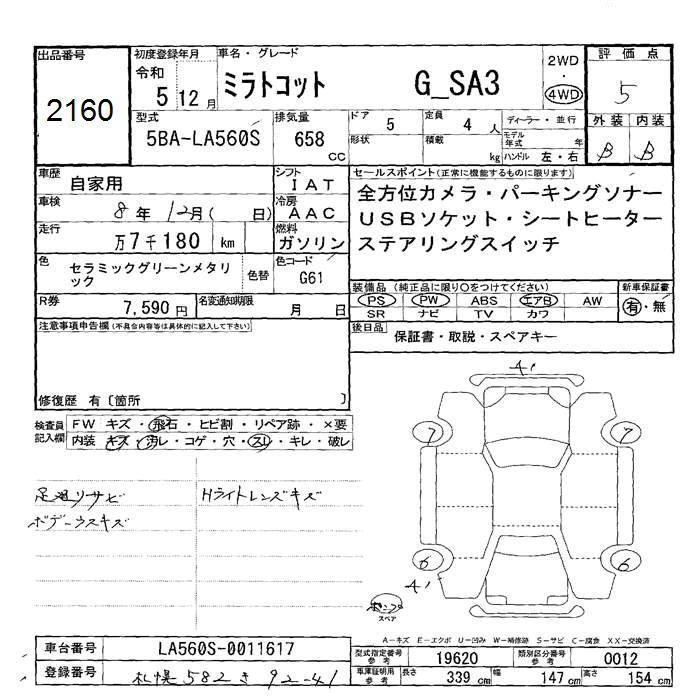 出品番号
2160
初度登録年月
令和
5 12月
車名・グレード
ミラトコット G_SA3
2WD
・
4WD
評価点
5
型式
5BA-LA560S
排気量
658
CC
ドア
5
定員
4人
形状
積載
kg
ディーラー・並行
モデル年式 年
ハンドル 左・右
外装 内装
B B
車歴
自家用
シフト
IAT
車検
8年12月( 日)
冷房
AAC
走行
万7千180 km
燃料
ガソリン
セールスポイント(正常に機能するものに限ります)
全方位カメラ・パーキングソナー
USBソケット・シートヒーター
ステアリングスイッチ
色
セラミックグリーンメタリック
色替
色コード
G61
装備品(純正品に限り○をつけてください)
PS PW ABS エアB AW
SR ナビ TV カワ
新車保証書
有・無
R券
7,590円
名変通知期限
月 日
後日品
保証書・取説・スペアキー
注意事項申告欄(不具合内容等は具体的に記入して下さい)
修復歴 有〔箇所 〕
検査員記入欄
FW キズ・飛石・ヒビ割・リペア跡・×要
内装 キズ・汚レ・コゲ・穴・スレ・キレ・破レ
足廻リサビ
ボデーウスキズ
Hライトレンズキズ
A'
7 7
6 6
A'
スペア
A-キズ E-エクボ U-凹み W-補修跡 S-サビ C-腐食 XX-交換済
車台番号
LA560S-0011617
登録番号
札幌 582 き 92-41
型式指定番号
参考
19620
類別区分番号
参考
0012
車庫証明用
参考
長さ 339 cm
幅 147 cm
高さ 154 cm